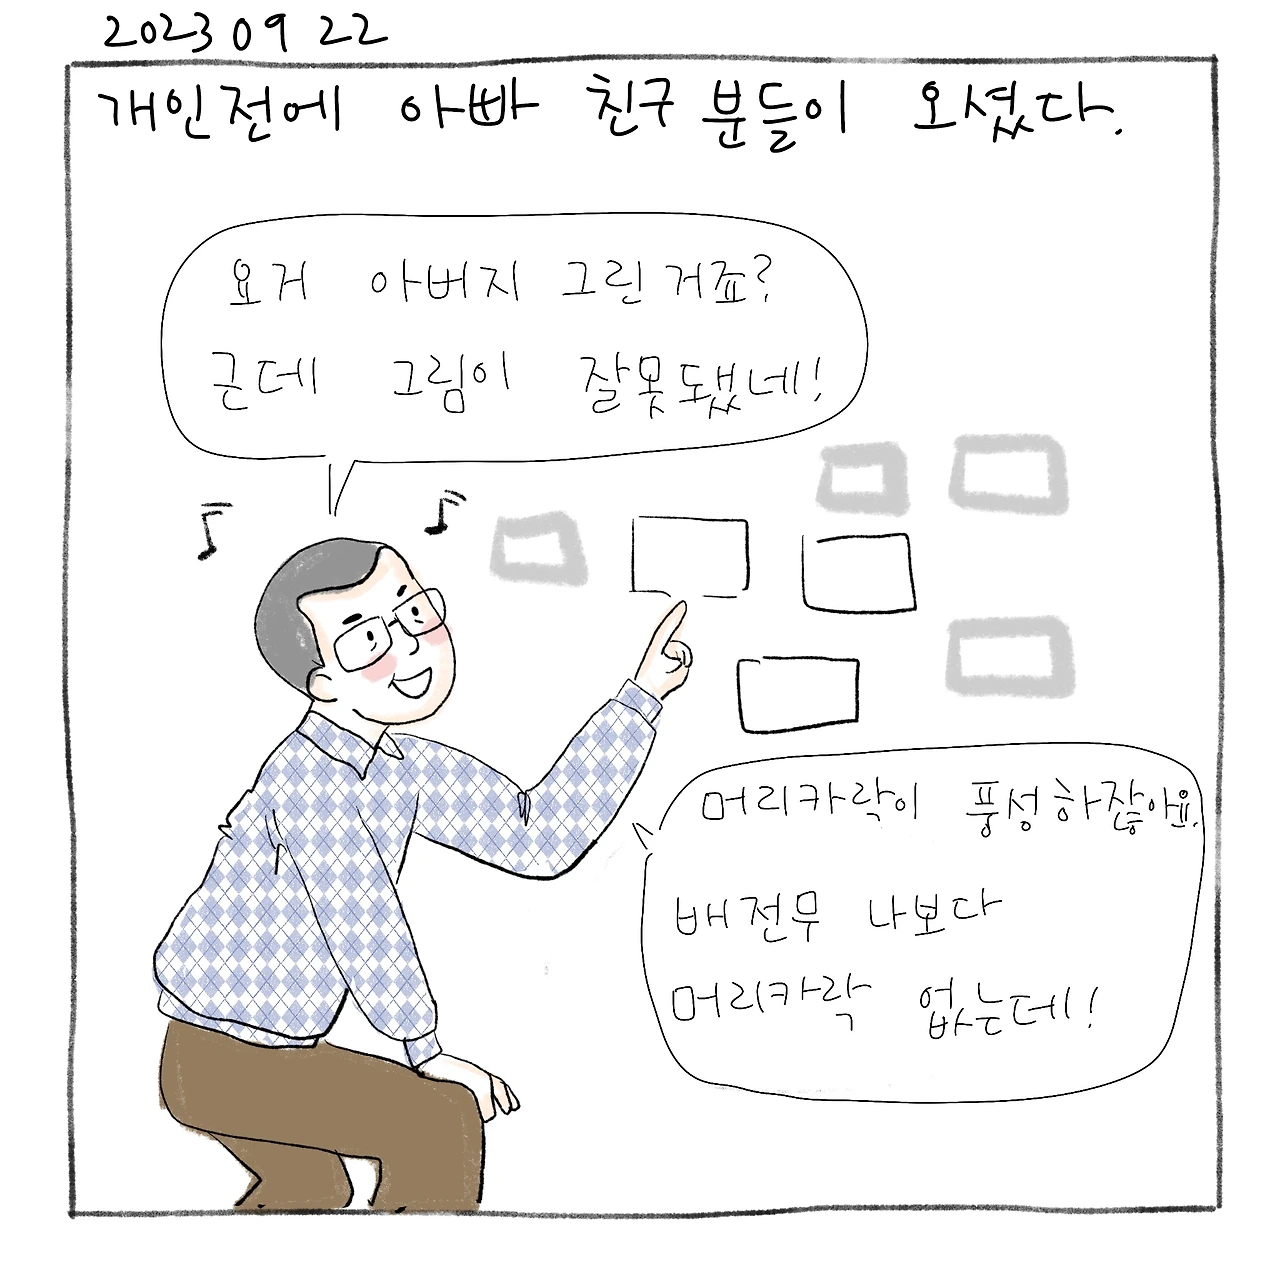 2023 09 22
개인전에 아빠 친구분들이 오셨다.
요거 아버지 그린거죠?
근데 그림이 잘못됐네!
머리카락이 풍성하잖아요.
배전무 나보다
머리카락 없는데!